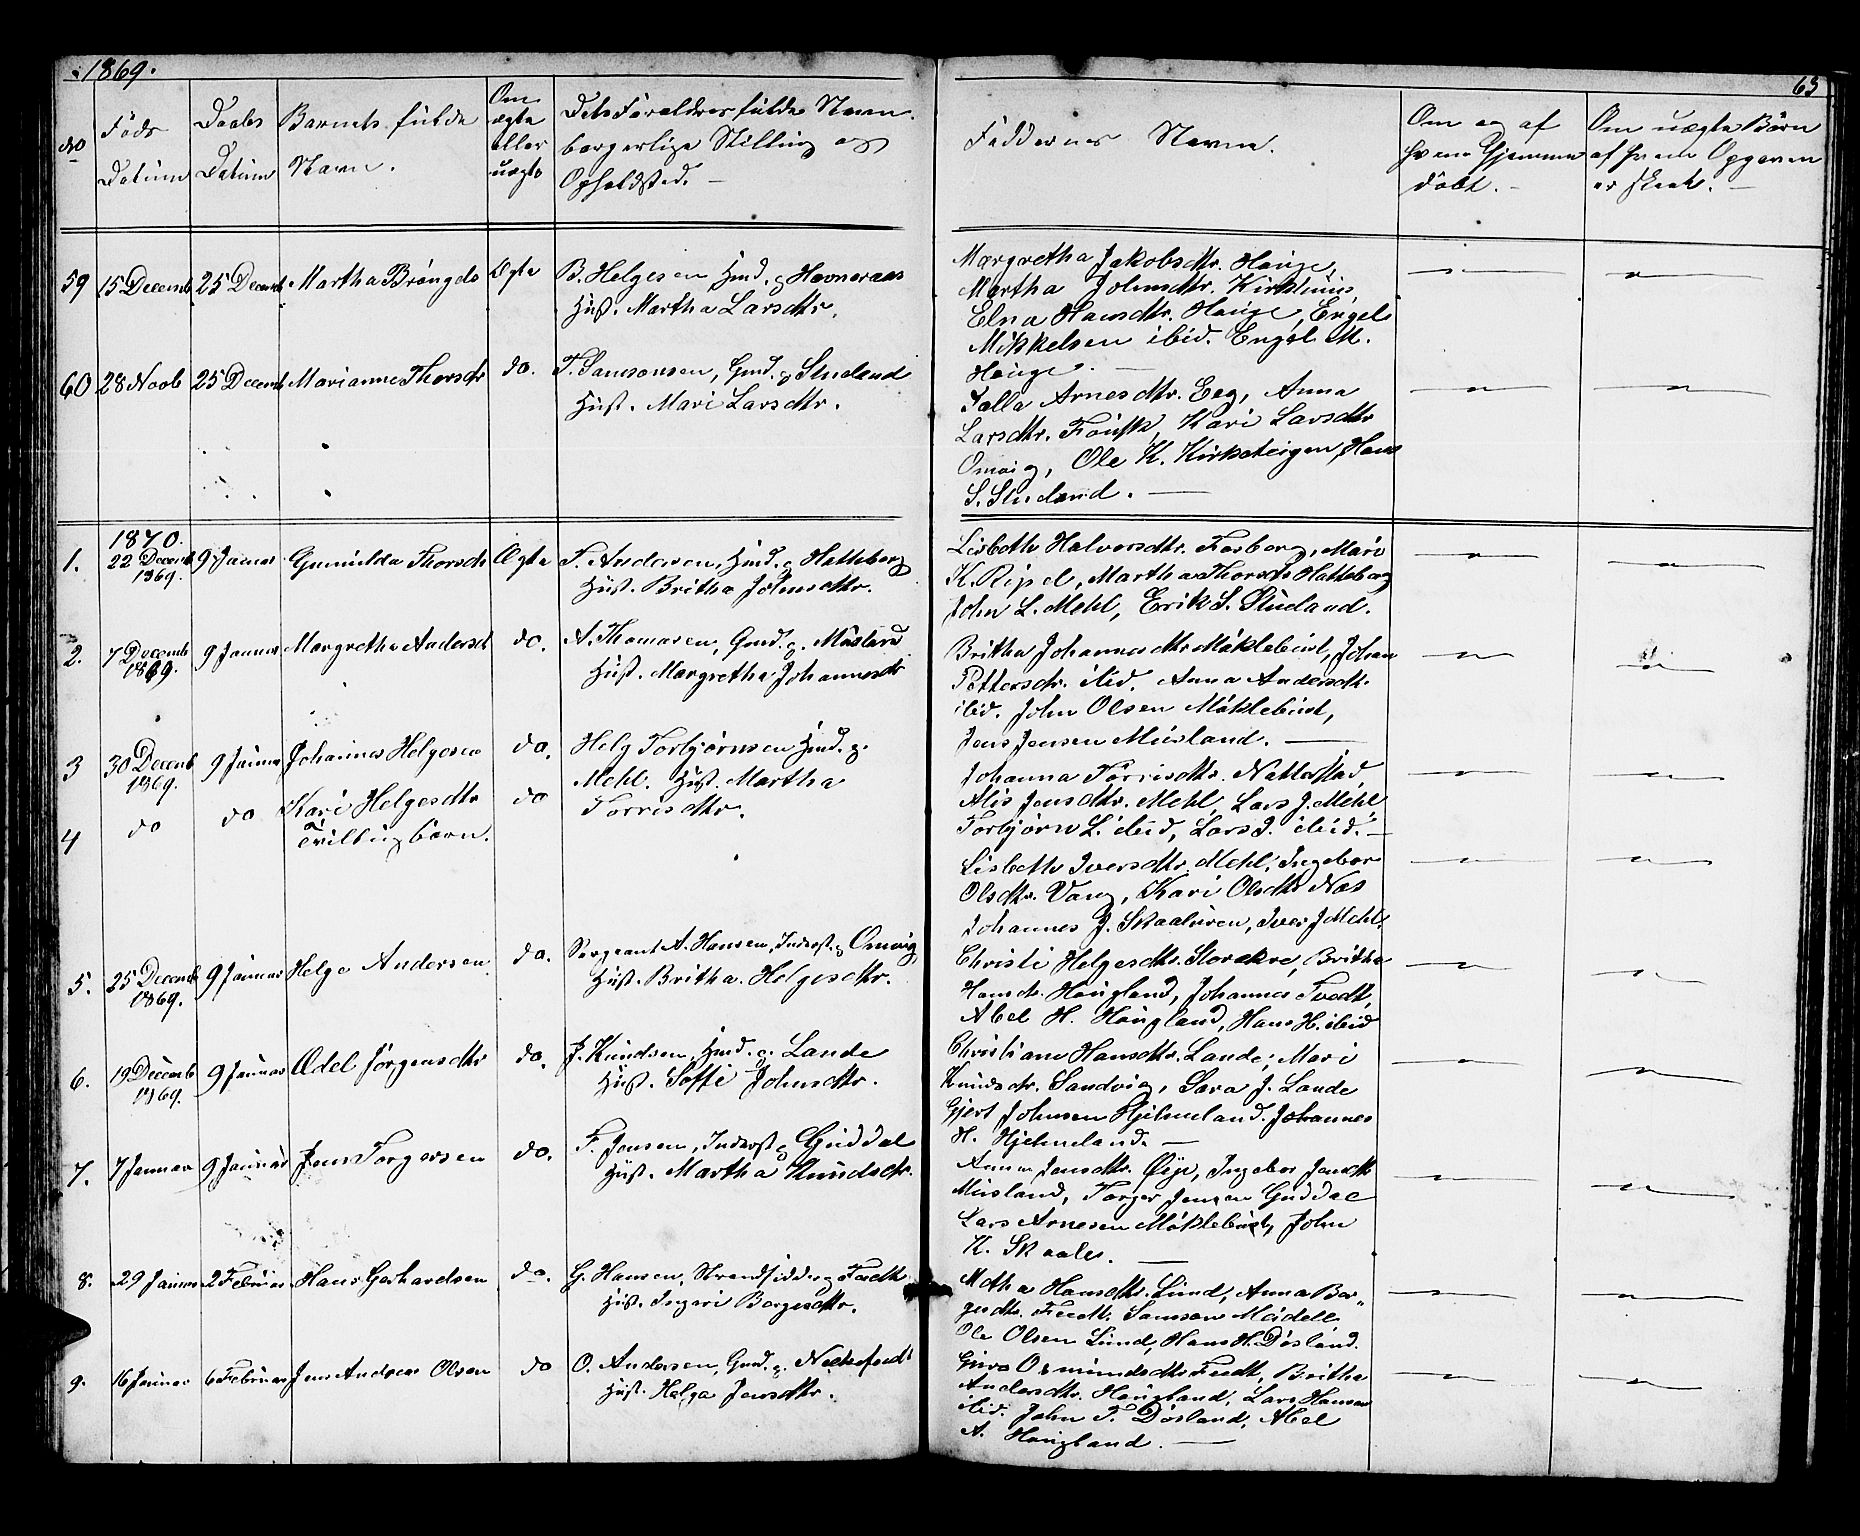 1869.
63
No
Føds
Datum
Daabs
Datum
Barnets fulde
Navn.
Om
ægte
eller
uægte
Dets Forældres fulde Navn.
borgerlige Stilling og
Opholdsted. —
Faddernes Navne.
Om og af
hvem Hjemme
døbt. —
Om uægte Børn
af hvem Opgaven
er skeet. —
59 15 Decemb 25 Decemb Martha Brøngels Ægte B. Helgesen Hmd. g Hovneraas
Hust. Martha Larsdtr.
Margretha Jakobsdtr. Hauge,
Martha Johnsdtr. Kirkhuus
Elna Hansdtr. Hauge, Engel
Mikkelsen ibid. Engel M.
Hauge. —
60 28 Novb 25 Decemb Marianne Thorsdtr do. T. Samsonsen, Gmd. g Stueland
Hust. Mari Larsdtr.
Salla Arnesdtr. Eeg, Anna
Larsdtr. Fousk, Kari Larsdtr
Omvig, Ole K. Kirketeigen, Hans
S. Stueland. —
1870.
1. 22 Decemb 9 Januar Gunnilda Thorsdtr Ægte T. Andersen, Hmd. g Hatteberg
1869.
Hust. Britha Johnsdtr.
Lisbeth Halvorsdtr. Fosberg, Mari
K. Ripel, Martha Thorsdtr Hatteberg
John L. Mehl, Erik S. Stueland.
2. 7 Decemb 9 Januar Margretha Andersdt do. A. Thomasen, Gmd. g. Musland
1869.
Hust. Margretha Johannesdtr
Britha Johannesdtr Møklebust, Johan
Pettersdtr. ibid. Anna Andersdtr.
ibid. John Olsen Møklebust,
Jens Jensen Musland. —
3 30 Decemb 9 Januar Johannes Helgesen do. Helg Torbjørnsen Hmd. g.
1869.
Mehl. Hust. Martha
Torrisdtr.
Johanna Torrisdtr. Natterstad,
Alis Jensdtr. Mehl, Lars J. Mehl,
Torbjørn L. ibid, Lars J. ibid. —
4 do do Kari Helgesdtr do
Tvillingbørn.
Lisbeth Iversdtr. Mehl, Ingebor
Olsdtr. Vang, Kari Olsdtr Næs
Johannes J. Skaaluren, Iver J Mehl.
5. 25 Decemb 9 Januar Helge Andersen do. Sergeant A. Hansen, Inderst g Omvig,
1869.
Hust. Britha Helgesdtr.
Christi Helgesdtr. Storakre, Britha
Hansdtr. Hougland, Johannes Tvedt,
Abel H. Hougland, Hans H. ibid
6. 19 Decemb 9 Januar Ædel Jørgensdtr do. J. Kundsen, Hmd. g. Lande
1869.
Hust. Soffi Johnsdtr.
Christiane Hansdtr. Lande, Mari
Knudsdtr. Sandvig, Sara J. Lande
Gjert Johnsen Hjelmeland. Johannes
H. Hjelmeland. —
7. 7 Januar 9 Januar Jens Torgersen do. T. Jensen, Inderst g Guddal
Hust. Martha Knudsdtr.
Anna Jensdtr. Øye, Ingebor Jensdtr
Musland, Torger Jensen Guddal
Lars Arnesen Møklebust, John
K. Skaale. —
8. 29 Januar 2 Februar Hans Gerhardsen do. G. Hansen, Strandsidder g Feedt
Hust. Ingeri Borgesdtr.
Metha Hansdtr. Lund, Anna Bor"
gesdtr. Feedt. Samson Mødell
Ole Olsen Lund, Hans H. Døsland.
9. 16 Januar 6 Februar Jens Andreas Olsen do O. Andersen, Gmd. g. Nedrefeedt
Hust. Helga Jensdtr.
Guro Osmundsdtr Feedt, Britha
Andersdtr. Hougland, Lars Hansen
ibid. John T. Døsland, Abel
A. Hougland. —